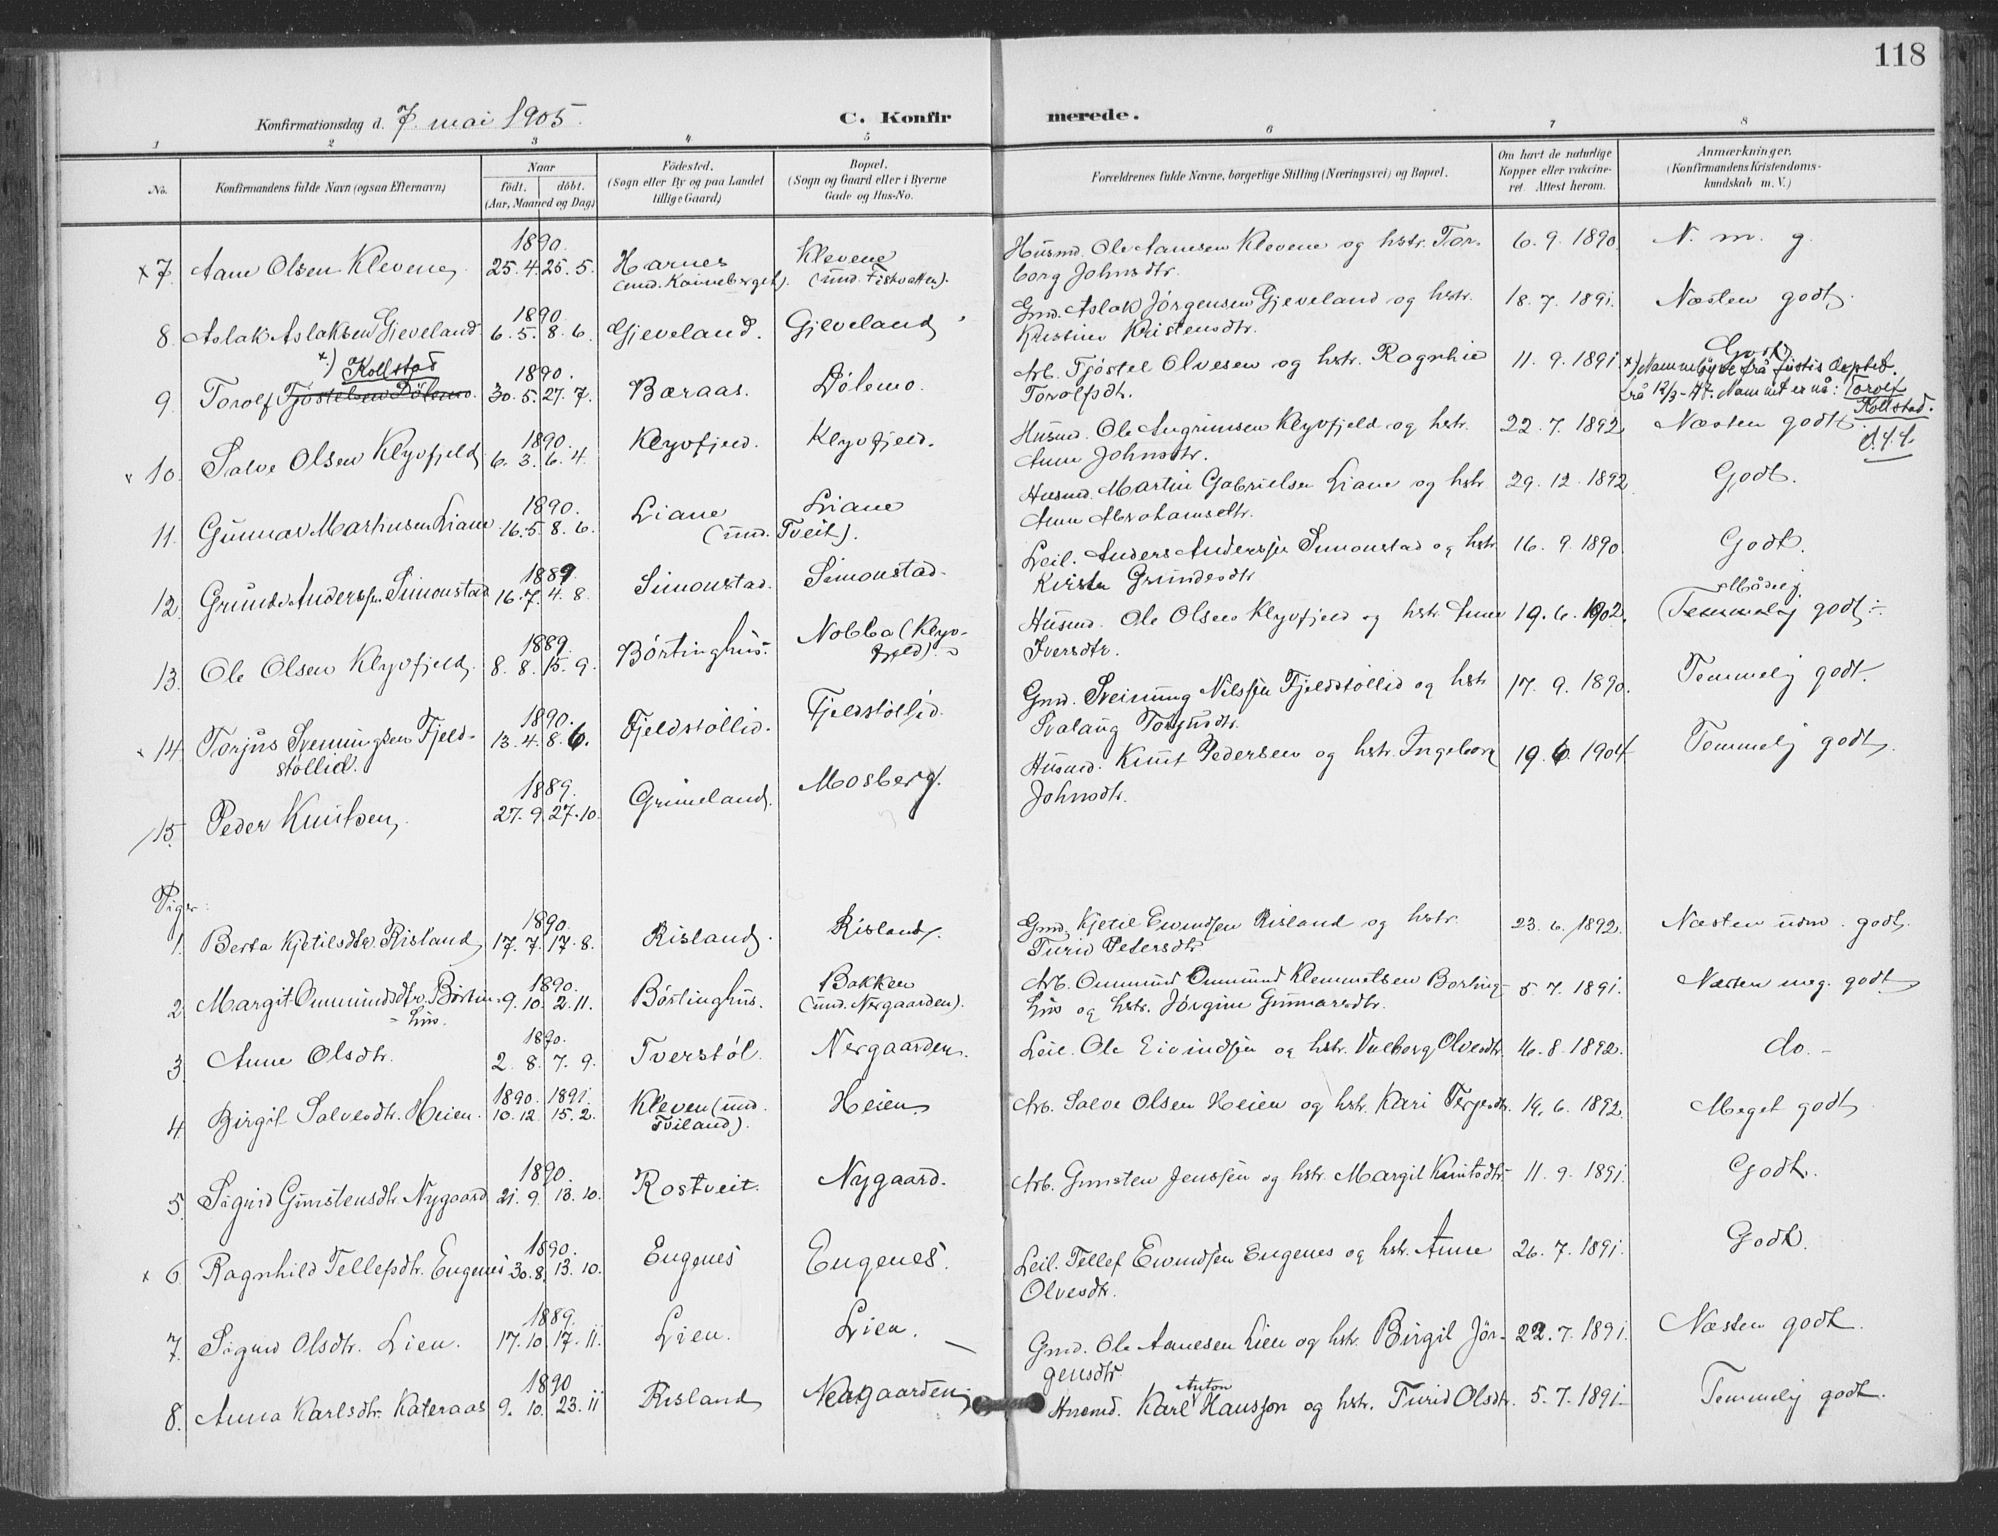 118
Konfirmationsdag d. 7. mai 1905.
C. Konfir
merede.
1 2 3 4 5 6 7 8
No.
Konfirmandens fulde Navn (ogsaa Efternavn)
Naar
födt. döbt.
(Aar, Maaned og Dag)
Födested.
(Sogn eller By og paa Landet
tillige Gaard)
Bopæl.
(Sogn og Gaard eller i Byerne
Gade og Hus-No.
Forældrenes fulde Navne, borgerlige Stilling (Næringsvei) og Bopæl.
Om havt de naturlige
Kopper eller vakcine-
ret. Attest herom.
Anmærkninger.
(Konfirmandens Kristendoms-
kundskab m. V.)
1890.
x 7. Aane Olsen Klevene, 25. 4. 25. 5. Harnes Klevene Husmd. Ole Aanesen Klevene og hstr. Tor- 6. 9. 1890. N. m. g.
(und. Fiskvatten). borg Johnsdtr.
1890.
8. Aslak Aslaksen Gjeveland. 6. 5. 8. 6. Gjeveland. Gjeveland Gmd. Aslak Jørgensen Gjeveland og hstr. 18. 7. 1891. Næsten godt.
Kristine Kristensdtr.
x) Kollstad
1890.
9. Torolf Fjøstelsen Dölemo. 30. 5. 27. 7. Bæraas. Dölemo. Arb. Fjöstel Olvesen og hstr. Ragnhil 11. 9. 1891. Godt.
Torolfsdtr.
x) Namnebyte frå Justis deptet.
frå 12/3-47. Namnet er nå: Torolf
Kollstad.
1890.
x 10. Salve Olsen Klyvfjeld 6. 3. 6. 4. Klyvfjeld. Klyvfjeld. Husmd. Ole Angrimsen Klyvfjeld og hstr. 22. 7. 1892. Næsten godt.
Anne Johnsdtr.
1890.
11. Gunnar Martinsen Liane 16. 5. 8. 6. Liane Liane Husmd. Martin Gabrielsen Liane og hstr 29. 12. 1892. Godt.
(und. Tveit). Anne Abrahamsdtr.
1889.
12. Grunde Anderssen Simonstad 16. 7. 4. 8. Simonstad. Simonstad. Leil. Anders Anderssen Simonstad og hstr 16. 9. 1890. Godt.
Kirste Grundesdtr
1889.
13. Ole Olsen Klyvfjeld. 8. 8. 15. 9. Børtinghus. Nobba (Klyv-
fjeld). Husmd. Ole Olsen Klyvfjeld og hstr. Anne 19. 6. 1902. Maadelig
(Temmelig godt.
Iversdtr.
1890.
x 14. Torjus Sveinungsen Fjeld- 13. 4. 8. 6. Fjeldstöllid. Fjeldstöllid. Gmd. Sveinung Nilssen Fjeldstöllid og hstr 17. 9. 1890. Temmelig godt.
støllid. Svalaug Torjusdtr.
1889.
15. Peder Knutsen, 27. 9. 27. 10. Grimeland. Mosberg. Husmd. Knut Pedersen og hstr. Ingeborg 19. 6. 1904. Temmelig godt.
Johnsdtr.
Piger:
1890.
1. Berta Kjetilsdtr. Risland, 17. 7. 17. 8. Risland. Risland. Gmd. Kjetil Evindsen Risland og hstr. 23. 6. 1892. Næsten udm. godt.
Turid Petersdtr
1890.
2. Margit Ommundsdtr. Børting- 9. 10. 2. 11. Børtinghus. Bakken Arb. Ommund Ommund Klemmetsen Borting- 5. 7. 1891. Næsten meg. godt
hus. (und. Nergaarden). hus og hstr. Jørgine Gunnarsdtr.
1890.
3. Anne Olsdtr. 2. 8. 7. 9. Tverstøl. Nergaarden. Leil. Ole Eivindsen og hstr. Valborg Olvesdtr. 16. 8. 1892. do. -
1890. 1891.
4. Birgit Salvesdtr. Heien. 10. 12. 15. 2. Kleven (und. Heien. Arb. Salve Olsen Heien og hstr. Kari Terjesdtr. 14. 6. 1892. Meget godt.
Tviland).
1890.
5. Sigrid Gunstensdtr Nygaard 21. 9. 13. 10. Rostveit. Nygaard. Arb. Gunsten Jenssen og hstr. Margit Knutsdtr. 11. 9. 1891. Godt.
1890.
x 6. Ragnhild Tellefsdtr. Eugenes 30. 8. 13. 10. Eugenes Eugenes. Leil. Tellef Evindsen Eugenes og hstr. Anne 26. 7. 1891. Godt.
Olvesdtr.
1889.
7. Sigrid Olsdtr. Lien. 17. 10. 17. 11. Lien. Lien. Gmd. Ole Aanesen Lien og hstr. Birgit Jör- 22. 7. 1891. Næsten godt.
gensdtr
1890
8. Anna Karlsdtr. Kateraas 9. 10. 23. 11 Risland Nergaarden. Husmd. Karl Anton Hansson og hstr. Turid Olsdtr. 5. 7. 1891. Temmelig godt.